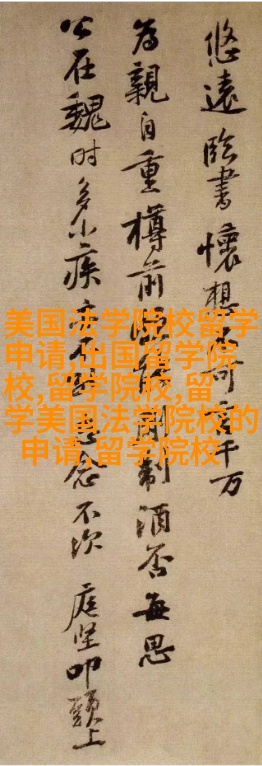 悠遠臨書懷想可言千万
為親自重樽前制酒否每思
公在魏時多小疾念不次 庭坚叩頭上
美国法学院校留学
申请,出国留学院
校,留学院校,留
学美国法学院校的
申请,留学院校